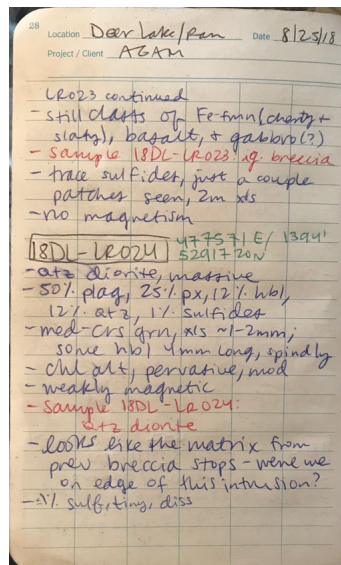 28 Location Deer Lake/Ran Date 8/25/18
Project / Client AGAM
LR023 continued
- still clasts of Fe-fmn (cherty +
slaty), basalt, + gabbro(?)
- Sample 18DL-LR023: ig. breccia
- trace sulfides, just a couple
patches seen, 2m xls
- no magnetism
18DL-LR024 477571E/ 1394'
5291720N
- qtz diorite, massive
- 50% plag, 25% px, 12% hbl,
12% qtz, 1% sulfides
- med-crs grn, xls ~1-2mm;
some hbl 4mm long, spindly
- chl alt, pervasive, mod
- weakly magnetic
- Sample 18DL-LR024:
qtz diorite
- looks like the matrix from
prev breccia stops - were we
on edge of this intrusion?
- 1% sulf, tiny, diss